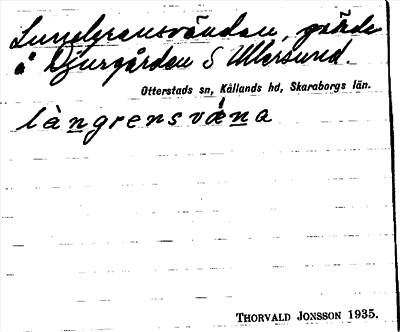 Lundgrensvändan, gärde
å Djurgården S Ullersund.
Otterstads sn, Kållands hd, Skaraborgs län.
làngrensvæ̀na
THORVALD JONSSON 1935.